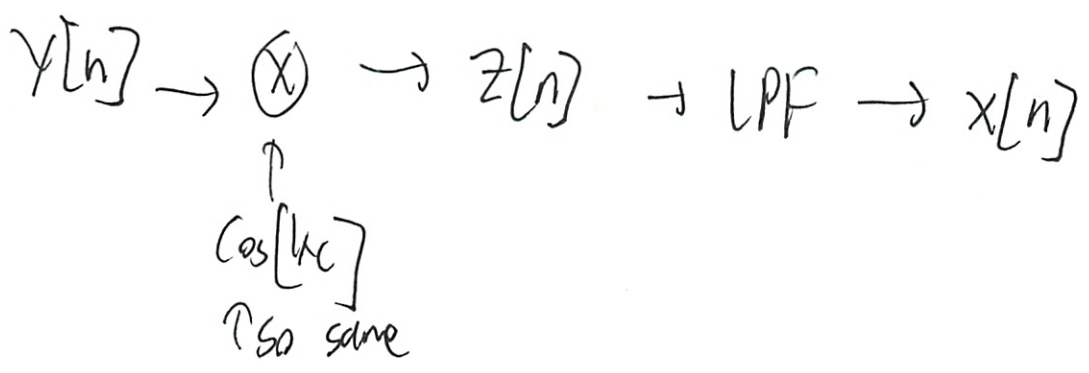 Y[n] → ⊗ → Z[n] → LPF → X[n]
↑
Cos[kc]
↑ so same